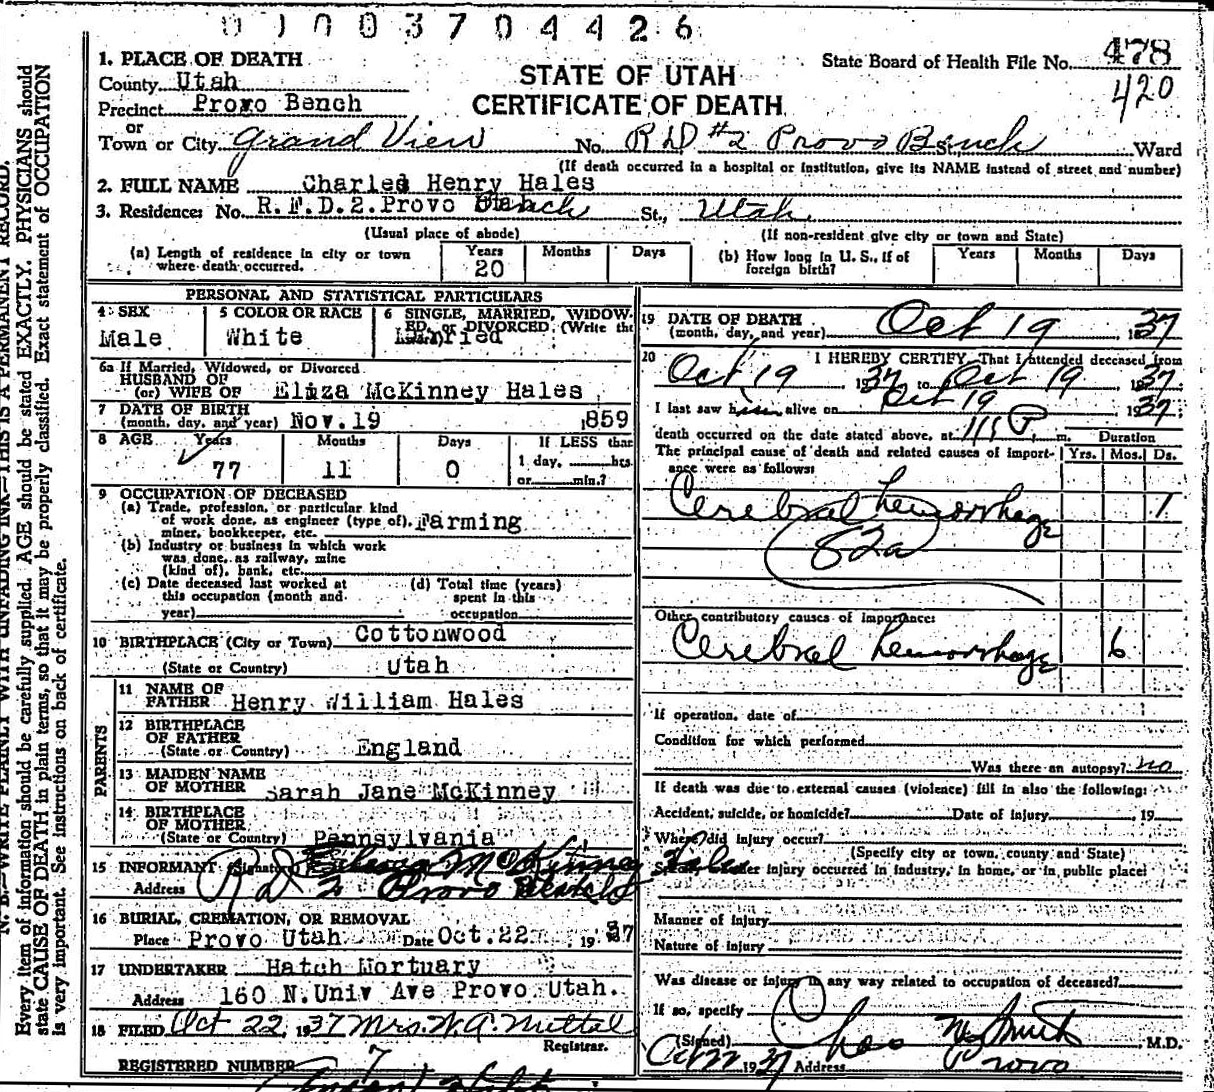 0 0 0 3 7 0 4 4 2 6
1. PLACE OF DEATH
County Utah
Precinct Provo Bench
or
Town or City Grand View No. RD #2 Provo Bench St., Ward
STATE OF UTAH
CERTIFICATE OF DEATH
State Board of Health File No. 478
420
(If death occurred in a hospital or institution, give its NAME instead of street and number)
2. FULL NAME Charles Henry Hales
3. Residence: No. R.F.D.2.Provo Bench St., Utah
(Usual place of abode) (If non-resident give city or town and State)
(a) Length of residence in city or town where death occurred. Years 20 Months Days
(b) How long in U. S., if of foreign birth? Years Months Days
PERSONAL AND STATISTICAL PARTICULARS
4 SEX Male
5 COLOR OR RACE White
6 SINGLE, MARRIED, WIDOWED, or DIVORCED. (Write the Married
6a If Married, Widowed, or Divorced
HUSBAND OF
(or) WIFE OF Eliza McKinney Hales
7 DATE OF BIRTH
(month, day, and year) Nov.19 859
8 AGE Years 77 Months 11 Days 0
If LESS than
1 day, hrs.
or min.?
9 OCCUPATION OF DECEASED
(a) Trade, profession, or particular kind
of work done, as engineer (type of), Farming
miner, bookkeeper, etc.
(b) Industry or business in which work
was done, as railway, mine
(kind of), bank, etc.
(c) Date deceased last worked at
this occupation (month and
year)
(d) Total time (years)
spent in this
occupation
10 BIRTHPLACE (City or Town) Cottonwood
(State or Country) Utah
PARENTS
11 NAME OF
FATHER Henry William Hales
12 BIRTHPLACE
OF FATHER
(State or Country) England
13 MAIDEN NAME
OF MOTHER Sarah Jane McKinney
14 BIRTHPLACE
OF MOTHER
(State or Country) Pennsylvania
15 INFORMANT (Signature) McKinney Hales
Address RD 2 Provo Bench
16 BURIAL, CREMATION, OR REMOVAL
Place Provo Utah Date Oct.22 , 1937
17 UNDERTAKER Hatch Mortuary
Address 160 N.Univ Ave Provo Utah.
18 FILED Oct 22, 1937 Mrs. W. A. Nuttal
Registrar.
REGISTERED NUMBER 7
19 DATE OF DEATH
(month, day, and year) Oct 19 , 1937
20 I HEREBY CERTIFY, That I attended deceased from
Oct 19 1937 to Oct 19 1937
I last saw him alive on Oct 19 1937
death occurred on the date stated above, at 115 P. m. Duration
The principal cause of death and related causes of importance were as follows: Yrs. Mos. Ds.
Cerebral hemorrhage 1
82a
Other contributory causes of importance:
Cerebral hemorrhage 6
If operation, date of
Condition for which performed
Was there an autopsy? no
If death was due to external causes (violence) fill in also the following:
Accident, suicide, or homicide? Date of injury , 19
Where did injury occur?
(Specify city or town, county and State)
injury occurred in industry, in home, or in public place:
Manner of injury
Nature of injury
Was disease or injury in any way related to occupation of deceased?
If so, specify
(Signed) Chas M Smith M.D.
Oct 22 1937 Address Provo
N. B.—WRITE PLAINLY WITH UNFADING INK—THIS IS A PERMANENT RECORD.
Every item of information should be carefully supplied. AGE should be stated EXACTLY. PHYSICIANS should
state CAUSE OF DEATH in plain terms, so that it may be properly classified. Exact statement of OCCUPATION
is very important. See instructions on back of certificate.